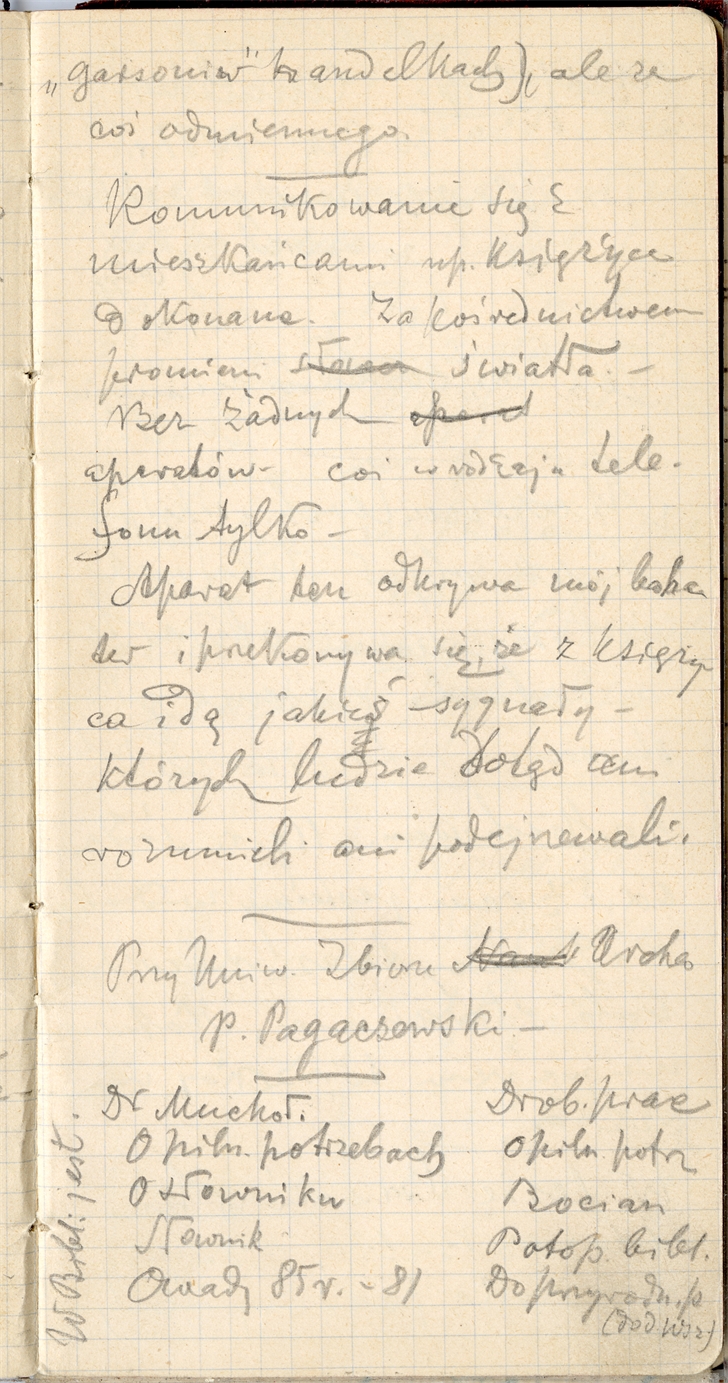 „garsoniw" handelkach), ale ze
coś odmiennego.
Komunikowanie się z
mieszkańcami np. Księżyca
Dokonane. Za pośrednictwem
promieni słońca światła. —
Bez żadnych aparat
aparatów — coś w rodzaju tele-
fonu tylko —
Aparat ten odkrywa mój boha
ter i przekonywa się, że z Księży
ca idą jakieś sygnały —
których ludzie dotąd ani
rozumieli ani podejrzewali.
Przy Uniw. Zbiory
P. Pagaczewski —
Dr Muchoł.
O piln. potrzebach
O słowniku
Słownik
Owady 85 r. - 81
Drob. prac
O piln. potrz
Bocian
Potop. bibl.
Do przyrodn. p
W Bibl. jest.